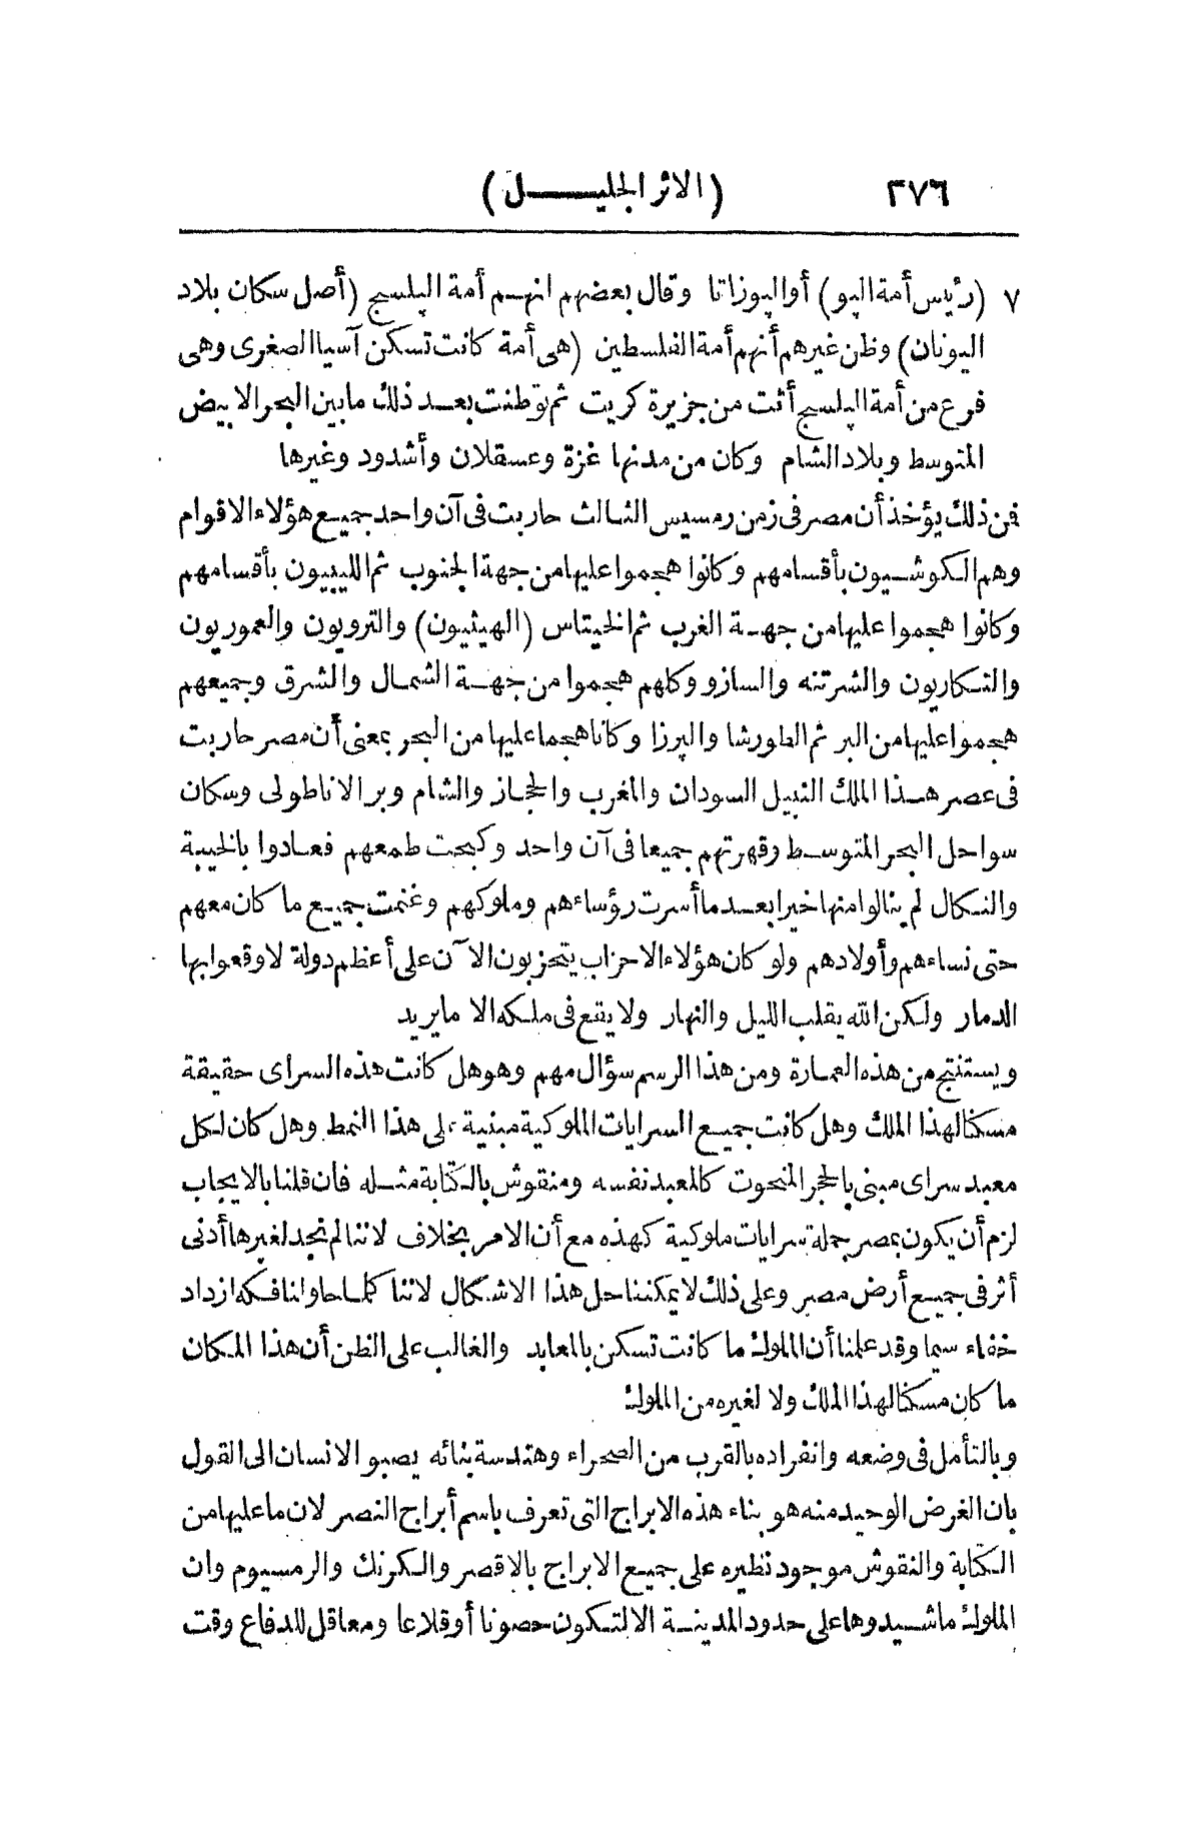 ٣٧٦ (الاثر الجليـــل)
٧ (رئيس أمة الپو) أو الپوزاتا وقال بعضهم انهم أمة الپلسچ (أصل سكان بلاد
اليونان) وظن غيرهم أنهم أمة الفلسطين (هى أمة كانت تسكن آسيا الصغرى وهى
فرع من أمة الپلسچ أتت من جزيرة كريت ثم توطنت بعد ذلك مابين البحر الابيض
المتوسط وبلاد الشام وكان من مدنها غزة وعسقلان وأشدود وغيرها
فمن ذلك يؤخذ أن مصر فى زمن رمسيس الثالث حاربت فى آن واحد جميع هؤلاء الاقوام
وهم الكوشيون بأقسامهم وكانوا هجموا عليها من جهة الجنوب ثم الليبيون بأقسامهم
وكانوا هجموا عليها من جهة الغرب ثم الخيتاس (الهيثيون) والترويون والعموريون
والتكاريون والشرتنه والسازو وكلهم هجموا من جهة الشمال والشرق وجميعهم
هجموا عليها من البر ثم الطورشا والپرزا وكانا هجما عليها من البحر بمعنى أن مصر حاربت
فى عصر هذا الملك النبيل السودان والمغرب والحجاز والشام وبر الاناطولى وسكان
سواحل البحر المتوسط وقهرتهم جميعا فى آن واحد وكبحت طمعهم فعادوا بالخيبة
والنكال لم ينالوا منها خيرا بعد ما أسرت رؤساءهم وملوكهم وغنمت جميع ما كان معهم
حتى نساءهم وأولادهم ولو كان هؤلاء الاحزاب يتحزبون الآن على أعظم دولة لاوقعوا بها
الدمار ولكن الله يقلب الليل والنهار ولا يقع فى ملكه الا مايريد
ويستنتج من هذه العمارة ومن هذا الرسم سؤال مهم وهو هل كانت هذه السراى حقيقة
مسكنا لهذا الملك وهل كانت جميع السرايات الملوكية مبنية على هذا النمط وهل كان لكل
معبد سراى مبنى بالحجر المنحوت كالمعبد نفسه ومنقوش بالكتابة مثله فان قلنا بالايجاب
لزم أن يكون بمصر جملة سرايات ملوكية كهذه مع أن الامر بخلاف لاننا لم نجد لغيرها أدنى
أثر فى جميع أرض مصر وعلى ذلك لا يمكننا حل هذا الاشكال لاننا كلما حاولنا فكه ازداد
خفاء سيما وقد علمنا أن الملوك ما كانت تسكن بالمعابد والغالب على الظن أن هذا المكان
ما كان مسكنا لهذا الملك ولا لغيره من الملوك
وبالتأمل فى وضعه وانفراده بالقرب من الصحراء وهندسة بنائه يصبو الانسان الى القول
بان الغرض الوحيد منه هو بناء هذه الابراج التى تعرف باسم أبراج النصر لان ما عليها من
الكتابة والنقوش موجود نظيره على جميع الابراج بالاقصر والكرنك والرمسيوم وان
الملوك ماشيدوها على حدود المدينة الا لتكون حصونا أو قلاعا ومعاقل للدفاع وقت